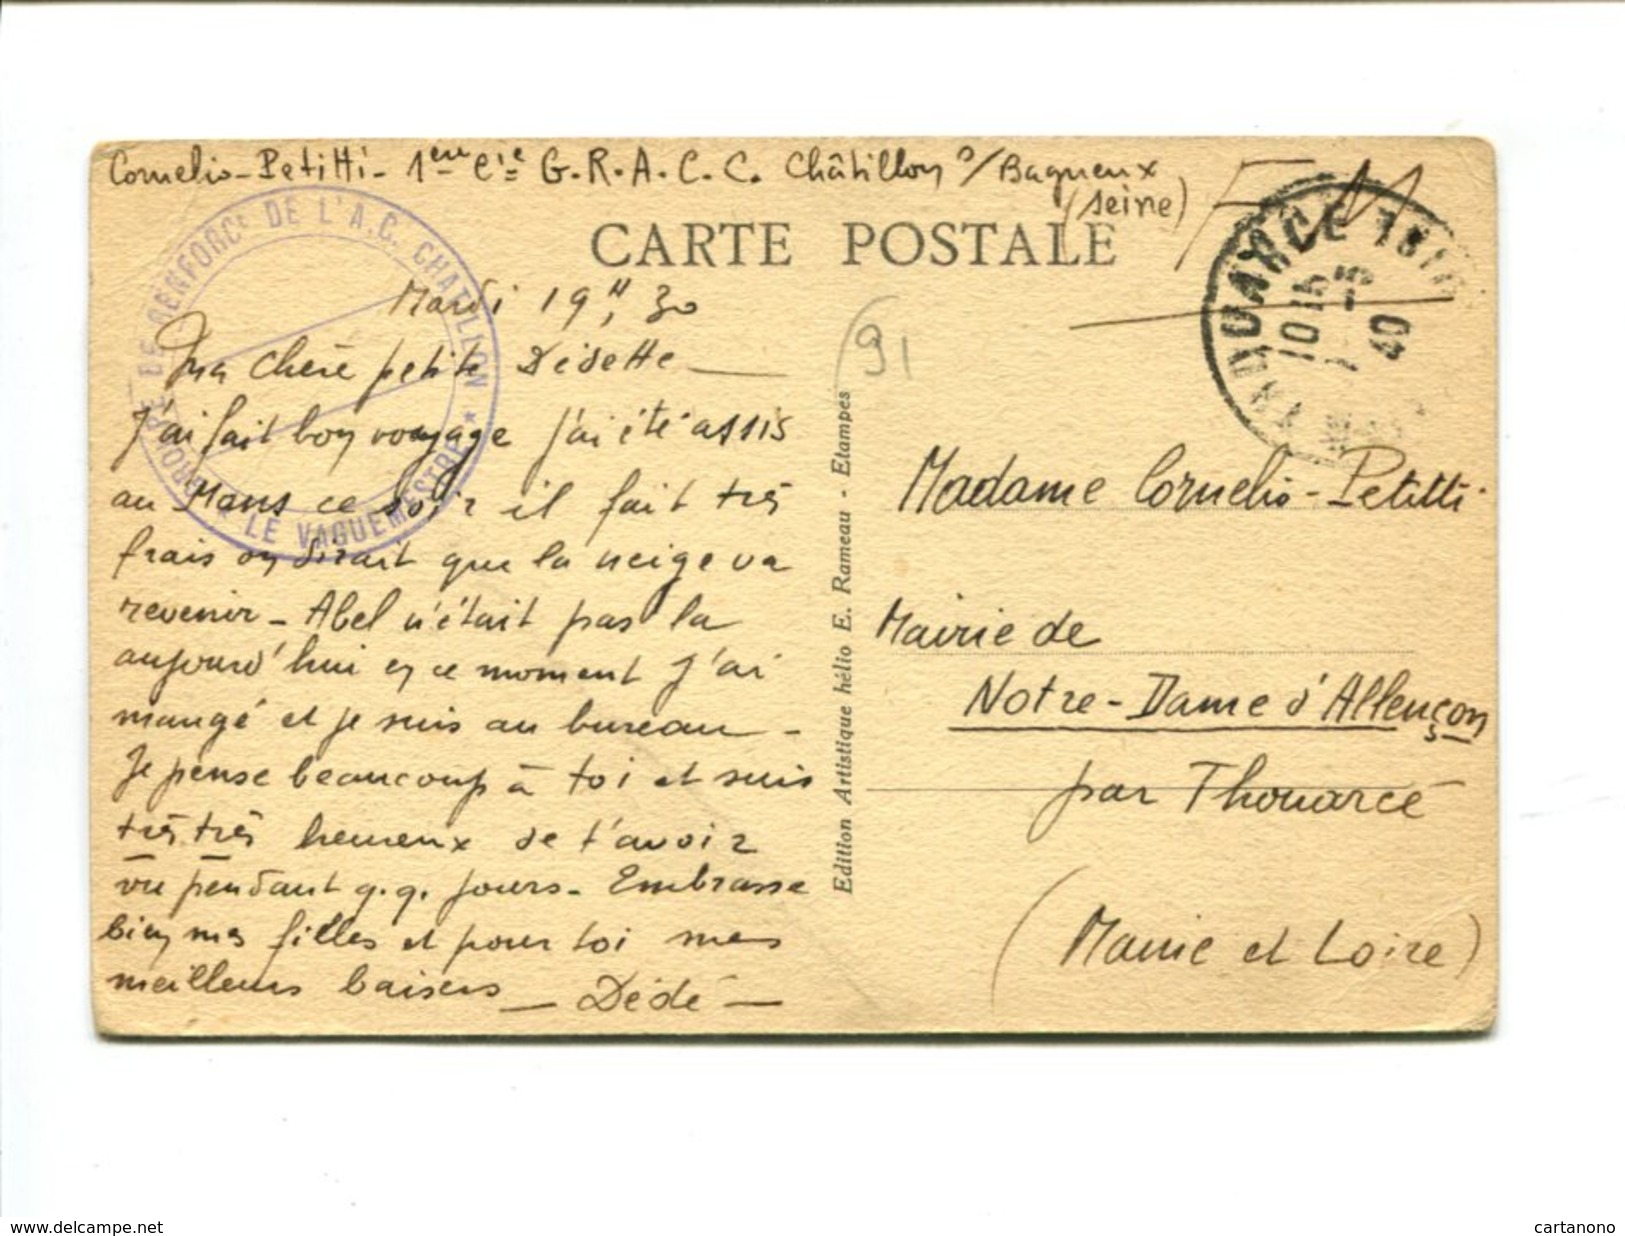 Cornelio-Petitti- 1ere Cie G.R.A.C.C. Châtillon s/Bagneux
(Seine)
F M
CARTE POSTALE
GROUPE DE RENFORCt DE L'A.C. CHATILLON
* LE VAGUEMESTRE *
THOUARCE
10 15
40
91
Mardi 19H,30
Ma chère petite Dédette
J'ai fait bon voyage j'ai été assis
au Mans ce soir il fait très
frais on dirait que la neige va
revenir - Abel n'était pas la
aujourd'hui en ce moment j'ai
mangé et je suis au bureau -
Je pense beaucoup à toi et suis
très très heureux de t'avoir
vu pendant q.q. jours - Embrasse
bien mes filles et pour toi mes
meilleurs baisers - Dédé -
Edition Artistique hélio E. Rameau - Etampes
Madame Cornelio-Petitti
Mairie de
Notre-Dame d'Allençon
par Thouarcé
(Maine et Loire)
www.delcampe.net
cartanono